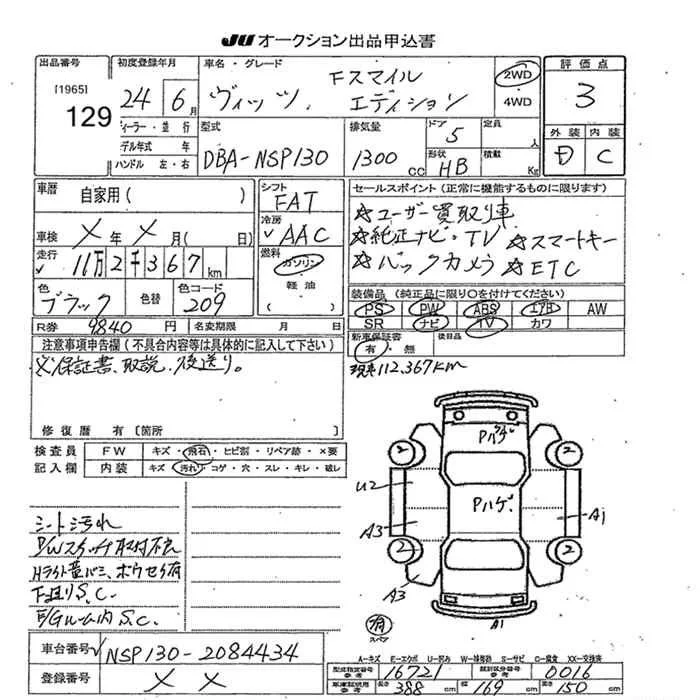 JU オークション出品申込書
出品番号
[1965]
129
初度登録年月
24年6月
ディーラー・並行
モデル年式 年
ハンドル 左・右
車名・グレード
ヴィッツ. Fスマイル
エディション
2WD
4WD
評価点
3
外装 内装
D C
型式
DBA-NSP130
排気量
1300 cc
ドア
5
定員
人
形状
HB
積載
Kg
車歴
自家用( )
シフト
FAT
車検
✓ × 年 × 月( 日)
冷房
✓ AAC
走行
✓ 11万2千367 km
燃料
ガソリン
軽油
( )
色
ブラック
色替
色コード
209
R券 9840 円 名変期限 月 日
セールスポイント(正常に機能するものに限ります)
☆ユーザー買取り車
☆純正ナビ・TV ☆スマートキー
☆バックカメラ ☆ETC
装備品(純正品に限り○を付けてください)
PS PW ABS エアB AW
SR ナビ TV カワ
新車保証書
有・無
後日品
現車112,367km
注意事項申告欄(不具合内容等は具体的に記入して下さい)
※保証書、取説、後送り。
修復歴 有〔箇所
検査員
記入欄
FW キズ・飛石・ヒビ割・リペア跡・×要
内装 キズ・汚れ・コゲ・穴・スレ・キレ・破レ
シート汚れ
P/Wスイッチ取付不良
Hライト黄バミ、ホウセキ有
F廻りS.C.
E/Gルーム内S.C.
Pハゲ
Pハゲ.
2
2
2
2
U2
A3
A3
A1
A1
有
スペア
A-キズ E-エクボ U-凹み W-補修跡 S-サビ C-腐食 XX-交換済
車台番号
✓ NSP130-2084434
登録番号
× ×
型式指定番号
参考
16721
類別
参考
0016
車庫証明用
参考
長さ 388 cm 幅 169 cm 高さ 150 cm